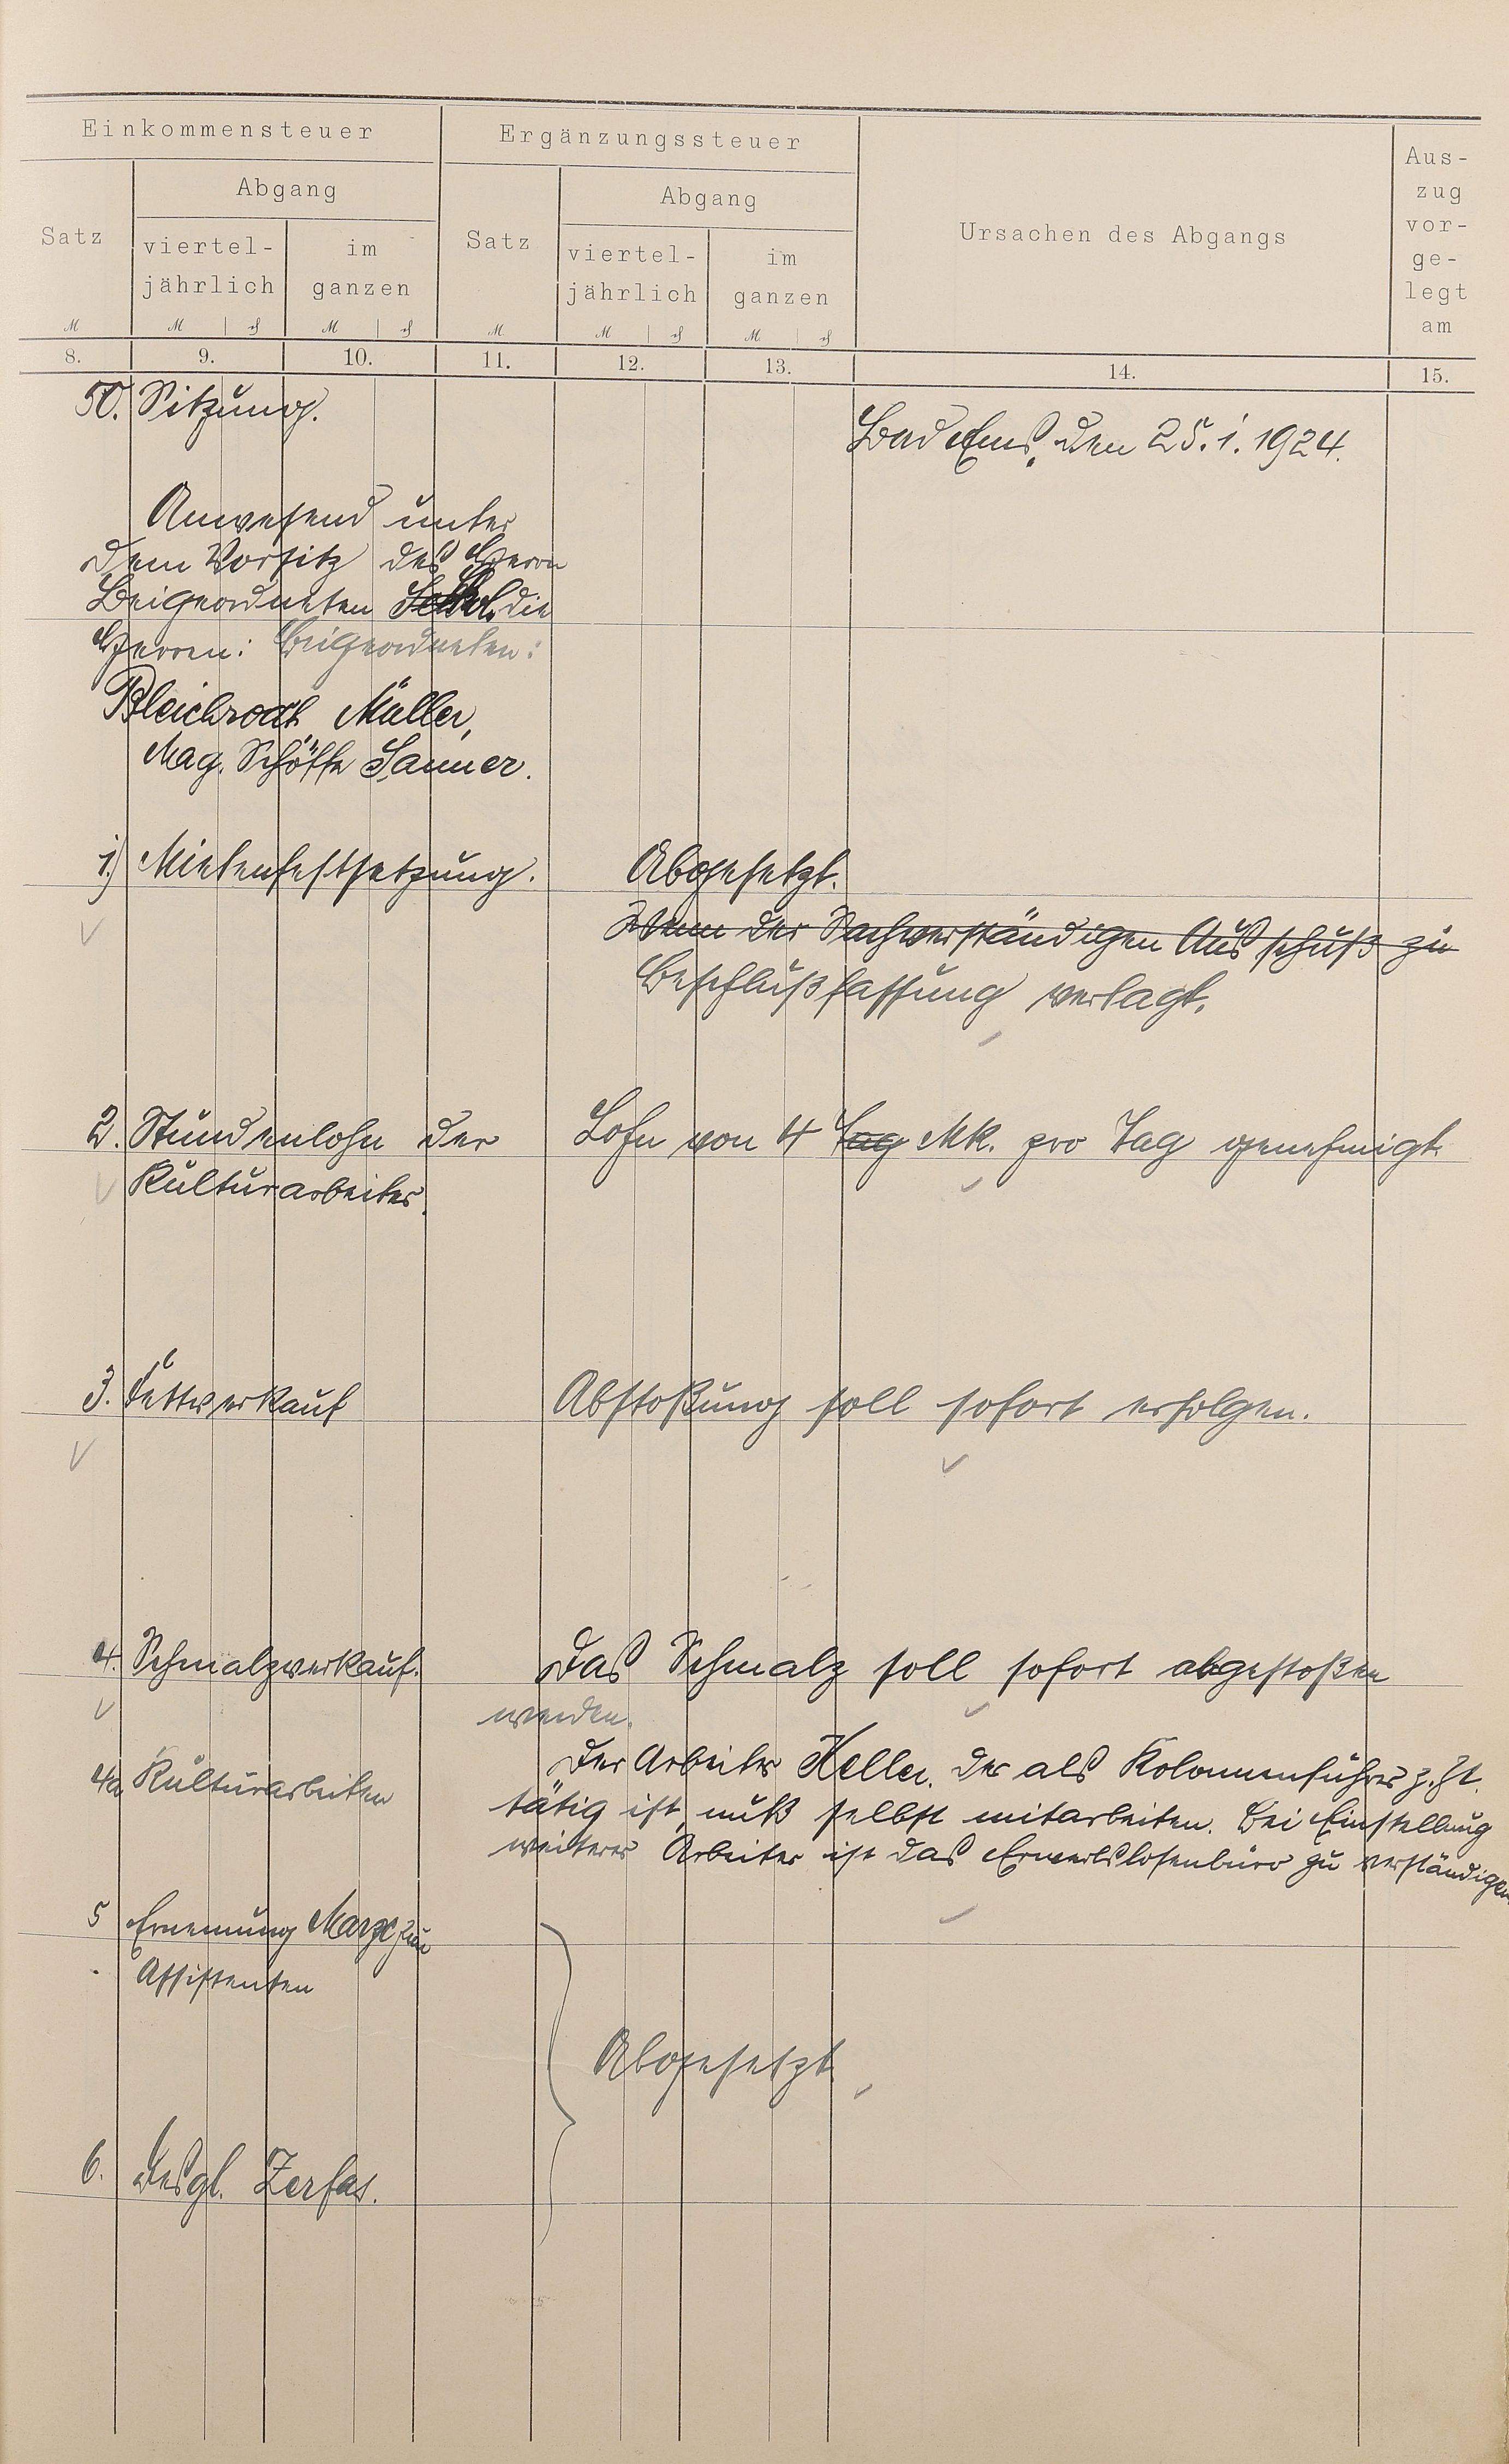 Einkommensteuer
Ergänzungssteuer
Ursachen des Abgangs
Aus-
zug
vor-
ge-
legt
am
Satz
Abgang
Satz
Abgang
viertel-
jährlich
im
ganzen
viertel-
jährlich
im
ganzen
M M ₰ M ₰ M M ₰ M ₰
8. 9. 10. 11. 12. 13. 14. 15.
50. Sitzung.
Bad Ems, den 25.1.1924.
Anwesend unter
dem Vorsitz des Herrn
Beigeordneten die
Herren: Beigeordneten:
Bleichrodt Müller,
Mag. Schöffe Sanner.
1.) Mietenfestsetzung. Abgesetzt.
der Sachverständigen Ausschuß zu
Beschlußfassung vertagt.
2. Stundenlohn der Lohn von 4 Tag Mk. pro Tag genehmigt.
Kulturarbeiter.
3. Fettverkauf Abstoßung soll sofort erfolgen.
4. Schmalzverkauf. Das Schmalz soll sofort abgestoßen
werden.
4a Kulturarbeiten Der Arbeiter Heller, der als Kolonnenführer z. Zt.
tätig ist, muß selbst mitarbeiten. Bei Einstellung
weiterer Arbeiter ist das Erwerbslosenbüro zu verständigen.
5 Ernennung Marx zum
Assistenten
Abgesetzt
6. Desgl. Zerfas.